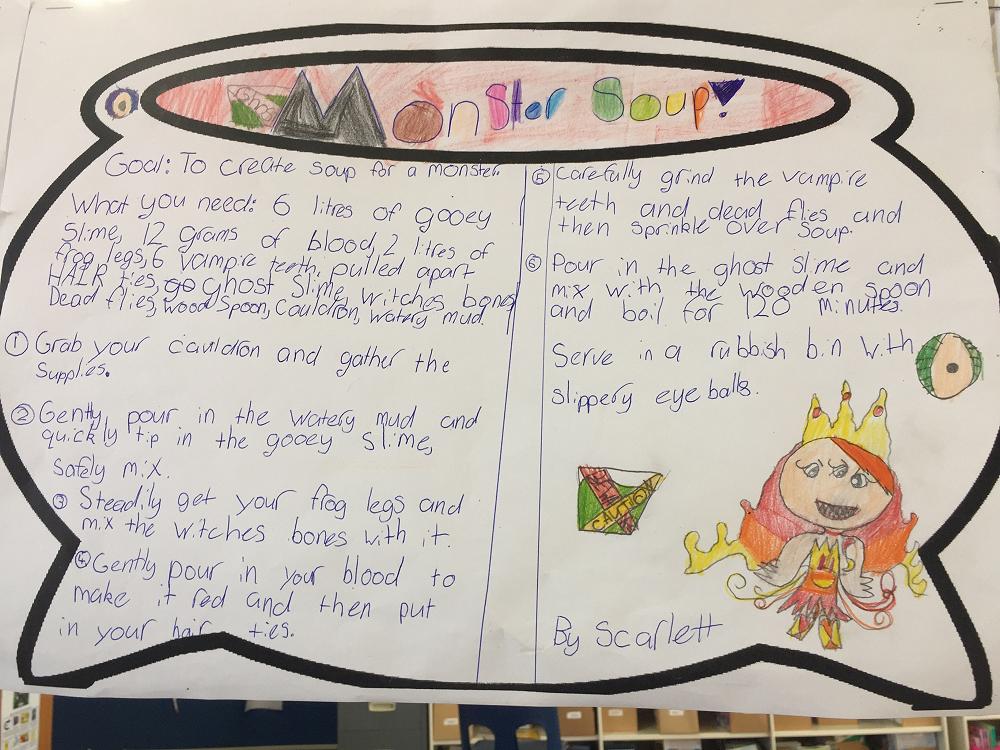 Monster Soup!
Goal: To create soup for a monster.
What you need: 6 litres of gooey
slime, 12 grams of blood, 2 litres of
frog legs, 6 vampire teeth, pulled apart
HAIR ties, go ghost slime, witches bones
Dead flies, wood spoon, cauldron, watery mud.
① Grab your cauldron and gather the
supplies.
② Gently pour in the watery mud and
quickly tip in the gooey slime,
safely mix.
③ Steadily get your frog legs and
mix the witches bones with it.
④ Gently pour in your blood to
make it red and then put
in your hair ties.
⑤ Carefully grind the vampire
teeth and dead flies and
then sprinkle over soup.
⑥ Pour in the ghost slime and
mix with the wooden spoon
and boil for 120 minutes.
Serve in a rubbish bin with
slippery eye balls.
CAUTION
By Scarlett